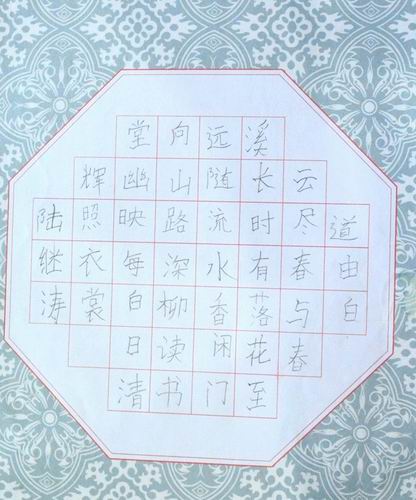 道由白
云尽春与春
溪长时有落花至
远随流水香闲门
向山路深柳读书
堂幽映每白日清
辉照衣裳
陆继涛